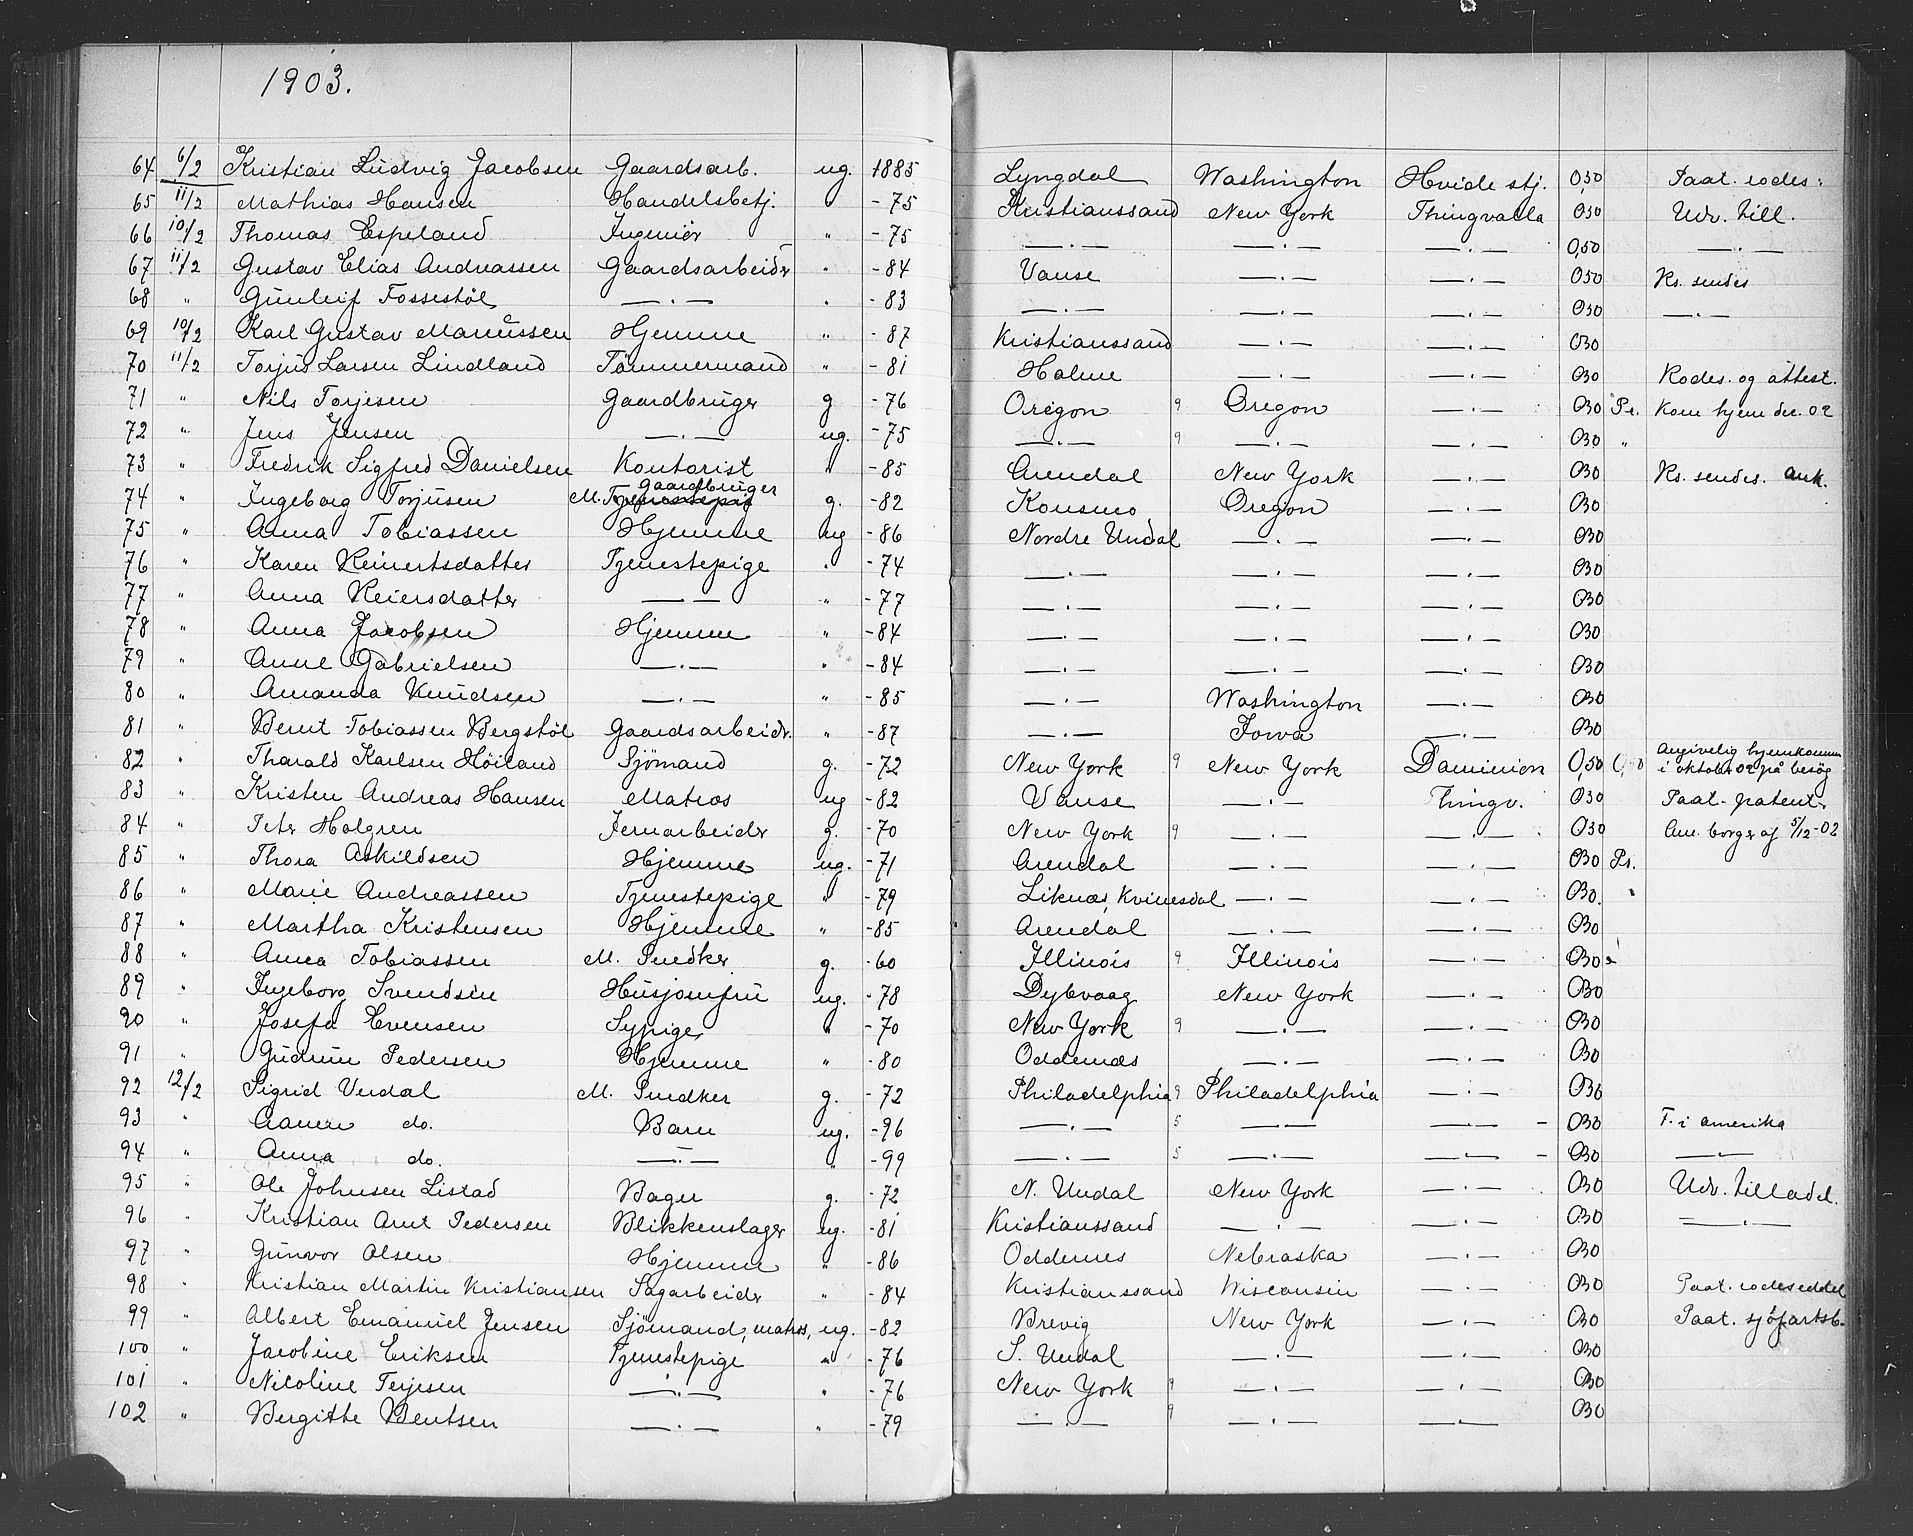 1903.
64 6/2 Kristian Ludvig Jacobsen Gaardsarb. ug. 1885 Lyngdal Washington Hvide stj. 0,50 Paat. rodes.
65 11/2 Mathias Hansen Handelsbetj. " - 75 Kristianssand New York Thingvalla 030 Udv. till.
66 10/2 Thomas Espeland Ingeniör " - 75 —"— —"— —"— 0,50 —"—
67 11/2 Gustav Elias Andreassen Gaardsarbeider " - 84 Vanse —"— —"— 050 Rs. sendes
68 " Gunleif Fossestöl —"— " - 83 —"— —"— —"— 030 —"—
69 10/2 Karl Gustav Mariussen Hjemme " - 87 Kristianssand —"— —"— 030
70 11/2 Torjus Larsen Lindland Tömmermand " - 81 Halme —"— —"— 030 Rodes. og attest.
71 " Nils Torjesen Gaardbruger g - 76 Oregon 9 Oregon —"— 030 Pr. Kom hjem dec. 02
72 " Jens Jensen —"— ug. - 75 —"— 9 —"— —"— 030 "
73 " Fredrik Sigfred Danielsen Kontorist " - 85 Arendal New York —"— 030 Rs. sendes. Ank.
74 " Ingeborg Torjusen M. Gaardbruger g. - 82 Konsmo Oregon —"— 030
75 " Anna Tobiassen Hjemme ug - 86 Nordre Undal —"— —"— 030
76 " Karen Reinertsdatter Tjenestepige " - 74 —"— —"— —"— 030
77 " Anna Reiersdatter —"— " - 77 —"— —"— —"— 030
78 " Anna Jacobsen Hjemme " - 84 —"— —"— —"— 030
79 " Anne Gabrielsen —"— " - 84 —"— —"— —"— 030
80 " Amanda Knudsen —"— " - 85 —"— Washington —"— 030
81 " Bernt Tobiassen Bergstöl Gaardsarbeidr. " - 87 —"— Iowa —"— 030
82 " Tharald Karlsen Höiland Sjömand g. - 72 New York 9 New York Dominion 0,50 Angivelig hjemkommen i oktober 02 på besög
83 " Kristen Andreas Hansen Matros ug - 82 Vanse —"— Thingv. 030 Paat. patent.
84 " Peter Holgren Jernarbeider g. - 70 New York 9 —"— —"— 030 Am. borger af 5/12-02
85 " Thora Askildsen Hjemme ug. - 71 Arendal —"— —"— 030 Pr.
86 " Marie Andreassen Tjenestepige " - 79 Liknæs, Kvinesdal —"— —"— 030. "
87 " Martha Kristensen Hjemme " - 85 Arendal —"— —"— 030
88 " Anna Tobiassen M. Snedker g. - 60 Illinois 9 Illinois —"— 030
89 " Ingeborg Svendsen Husjomfru ug. - 78 Dybvaag New York —"— 030
90 " Josefa Evensen Sypige " - 70 New York 9 —"— —"— 030
91 " Gudrun Pedersen Hjemme " - 80 Oddernæs —"— —"— 030
92 12/2 Sigrid Undal M. Snedker g. - 72 Philadelphia 9 Philadelphia —"— 030
93 " do. Barn ug. - 96 —"— 5 —"— —"— - 030 F. i amerika
94 " Anna do. —"— " - 99 —"— 5 —"— —"— - 030 —"—
95 " Ole Johnsen Listad Bager g. - 72 N. Undal New York —"— 030 Udv. tilladel.
96 " Kristian Arnt Pedersen Blikkenslager ug. - 81 Kristianssand —"— —"— 030 —"—
97 " Gunvor Olsen Hjemme " - 86 Oddernes Nebraska —"— 030
98 " Kristian Martin Kristiansen Sagarbeider " - 84 Kristianssand Wisconsin —"— 030 Paat. rodeseddel
99 " Albert Emanuel Jensen Sjömand, matros, ug. - 82 Brevig New York —"— 030 Paat. sjöfartsb.
100 " Jacobine Eriksen Tjenestepige " - 76 S. Undal —"— —"— 030
101 " Nicoline Terjesen —"— " - 76 New York 9 —"— —"— 030
102 " Bergitte Bentsen —"— " - 79 —"— 9 —"— —"— 030